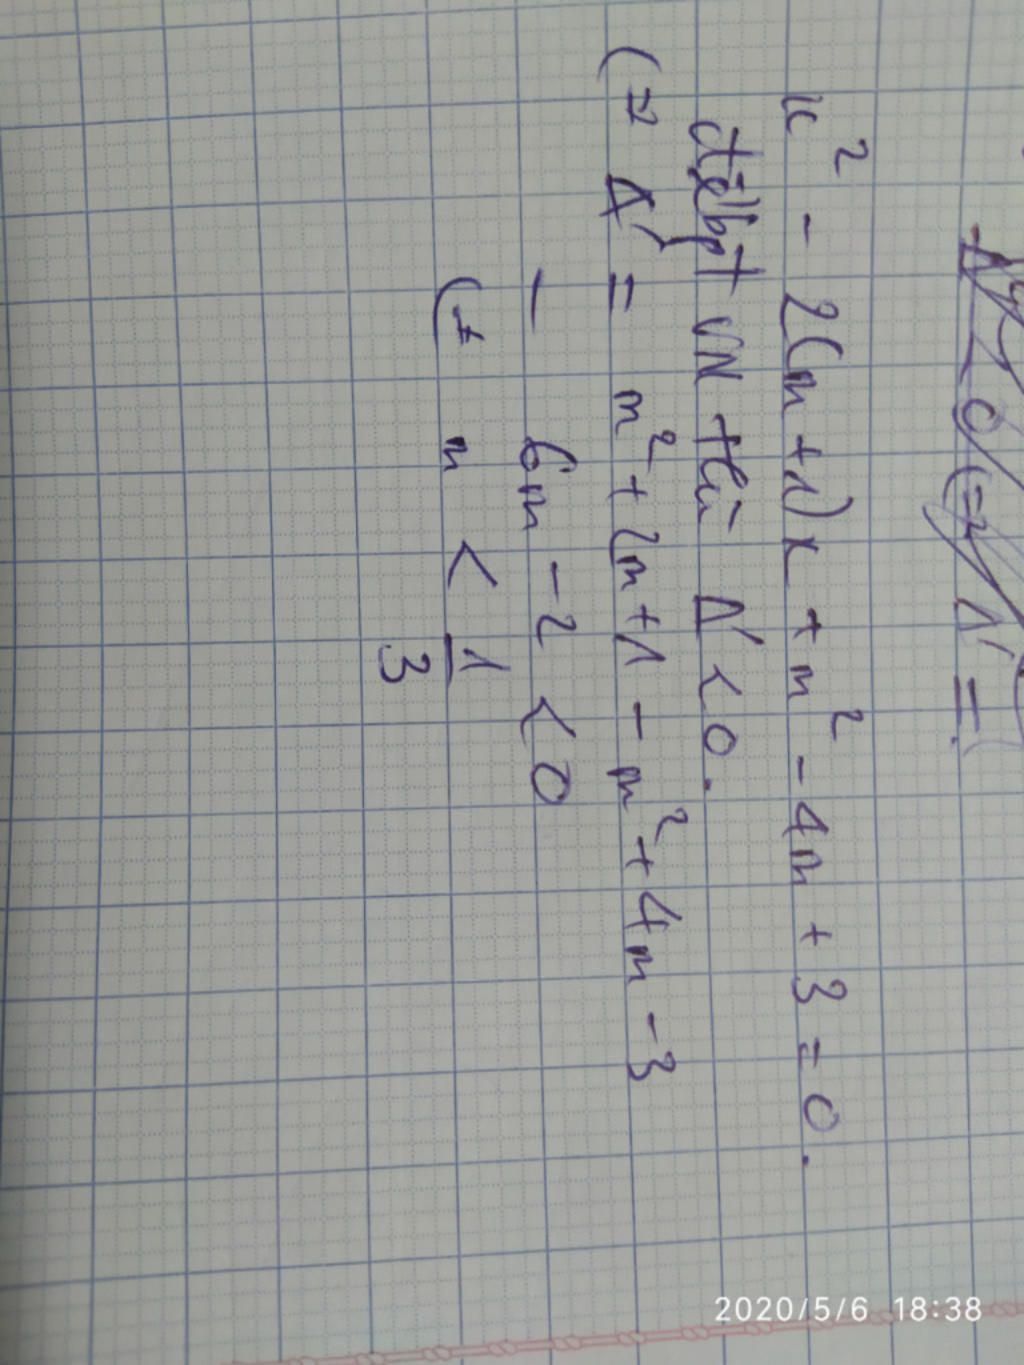 x² - 2(m+1)x + m² - 4m + 3 = 0.
để pt VN thì Δ' < 0.
(=) Δ' = m² + 2m + 1 - m² + 4m - 3
- 6m - 2 < 0
(=) m < 1/3
2020/5/6 18:38